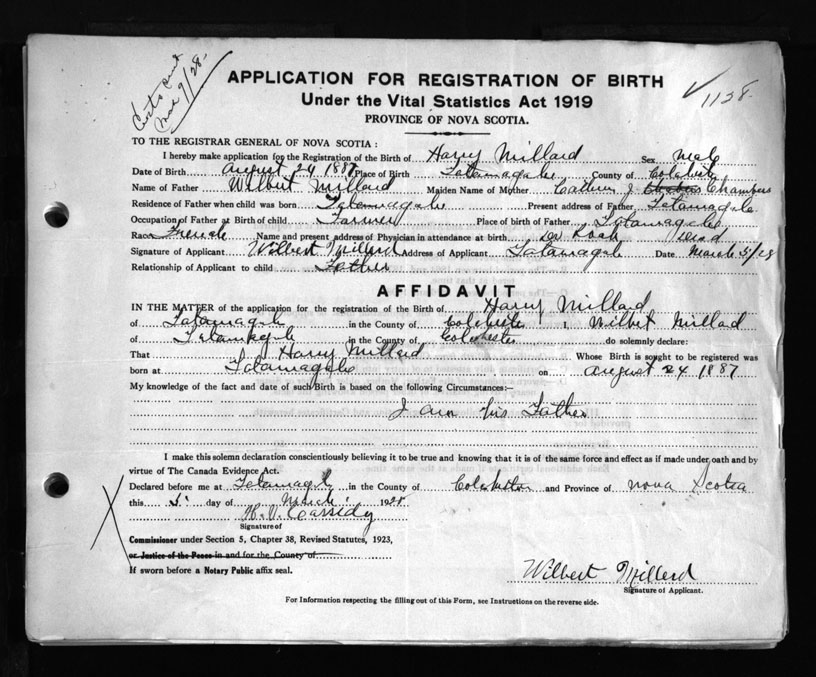 Certs sent
Mar 9/28.
1128.
APPLICATION FOR REGISTRATION OF BIRTH
Under the Vital Statistics Act 1919
PROVINCE OF NOVA SCOTIA.
TO THE REGISTRAR GENERAL OF NOVA SCOTIA:
I hereby make application for the Registration of the Birth of Harry Millard Sex Male
Date of Birth August 24 1887 Place of Birth Tatamagche County of Colchester
Name of Father Wilbert Millard Maiden Name of Mother J Chambers
Residence of Father when child was born Tatamagche Present address of Father Tatamagche
Occupation of Father at Birth of child Farmer Place of birth of Father Tatamagche
Race French Name and present address of Physician in attendance at birth Dr Roach Dead
Signature of Applicant Wilbert Millerd Address of Applicant Tatamagche Date March 5/28
Relationship of Applicant to child Father
AFFIDAVIT
IN THE MATTER of the application for the registration of the Birth of Harry Millard
of Tatamagche in the County of Colchester I, Wilbert Millard
of Tatamagche in the County of Colchester do solemnly declare:
That Harry Millard Whose Birth is sought to be registered was
born at Tatamagche on August 24 1887
My knowledge of the fact and date of such Birth is based on the following Circumstances:—
I am his Father
I make this solemn declaration conscientiously believing it to be true and knowing that it is of the same force and effect as if made under oath and by
virtue of The Canada Evidence Act.
Declared before me at Tatamagche in the County of Colchester and Province of Nova Scotia
this 5 day of March 1928
Cassidy
Signature of
Commissioner under Section 5, Chapter 38, Revised Statutes, 1923,
or Justice of the Peace in and for the County of
If sworn before a Notary Public affix seal.
Wilbert Millerd
Signature of Applicant.
For Information respecting the filling out of this Form, see Instructions on the reverse side.